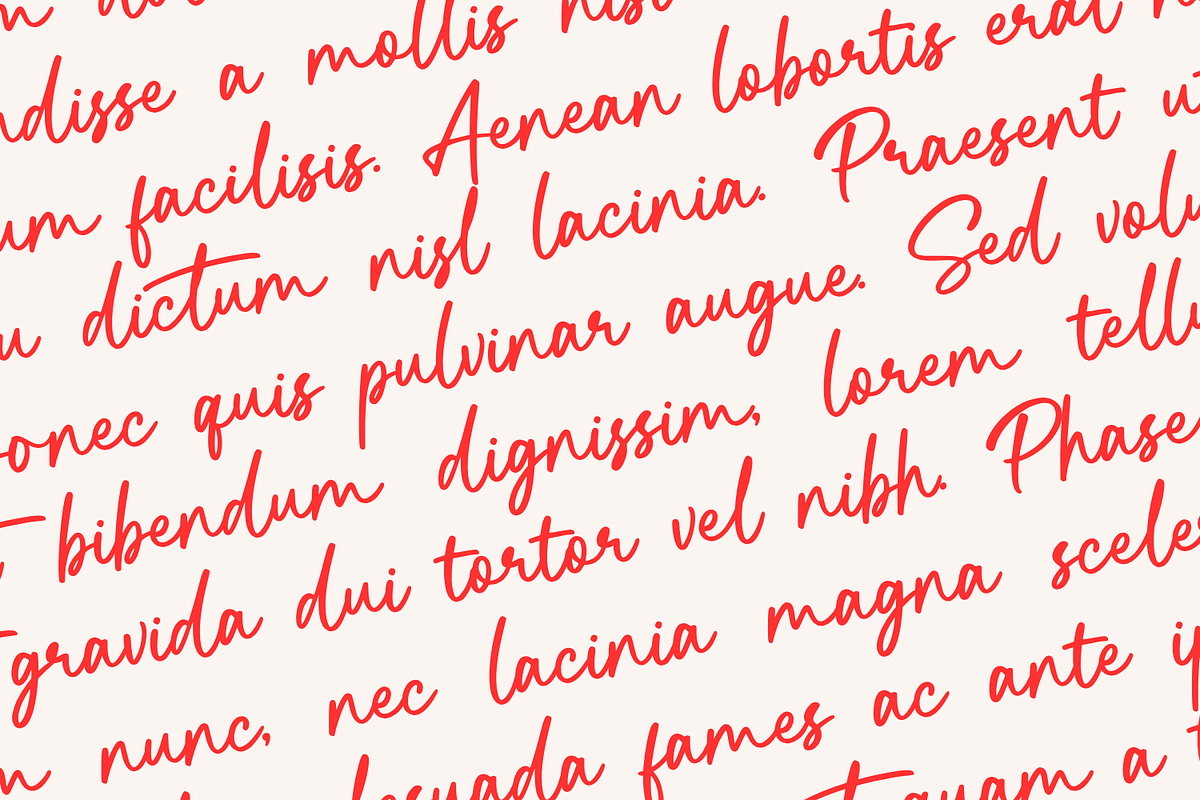 ndisse a mollis nisl
um facilisis. Aenean lobortis erat
u dictum nisl lacinia. Praesent ut
onec quis pulvinar augue. Sed volu
t bibendum dignissim, lorem tellu
gravida dui tortor vel nibh. Phase
nunc, nec lacinia magna sceles
lesuada fames ac ante ip
quam a